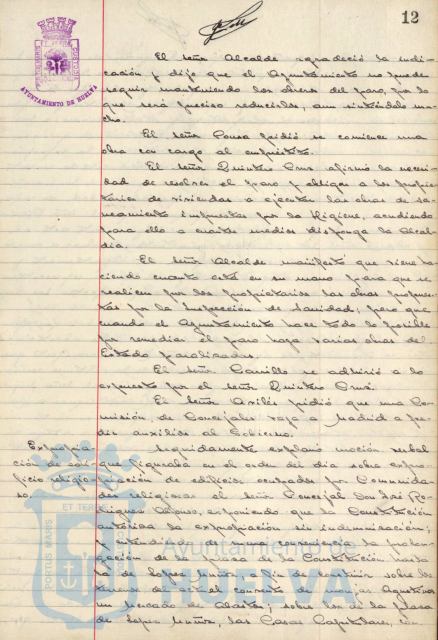 12
AYUNTAMIENTO DE HUELVA
El señor Alcalde agradeció la indi-
cación y dijo que el Ayuntamiento no puede
seguir manteniendo los obreros del paro, por lo
que será preciso reducirlos, aun sintiéndolo mu-
cho.
El señor Ponsa pidió se comience una
obra con cargo al empréstito.
El señor Quintero Cruz afirmó la necesi-
dad de resolver el paro y obligar a los propie-
tarios de viviendas a ejecutar las obras de sa-
neamiento impuestas por la Higiene, acudiendo
para ello a cuantos medios disponga la Alcal-
día.
El señor Alcalde manifestó que viene ha-
ciendo cuanto está en su mano para que se
realicen por los propietarios las obras propues-
tas por la Inspección de Sanidad; pero que
cuando el Ayuntamiento hace todo lo posible
por remediar el paro haya varias obras del
Estado paralizadas.
El señor Carrillo se adhirió a lo
expuesto por el señor Quintero Cruz.
El señor Avilés pidió que una Co-
misión de Concejales vaya a Madrid a pe-
dir auxilios al Gobierno.
Expropia-
ción de edi-
ficio religio-
so.
Seguidamente explanó moción verbal
que figuraba en el orden del día sobre expro-
piación de edificios ocupados por Comunida-
des religiosas el señor Concejal Don José Ro-
dríguez Alfonso, exponiendo que la Constitución
autoriza la expropiación sin indemnización;
y entendiendo de suma conveniencia la prolon-
gación de la plaza de la Constitución
de López Muñoz a fin de construir sobre los
terrenos del actual convento de monjas Agustinas
un mercado de Abastos; sobre los de la plaza
de López Muñoz, las Casas Capitulares, con
Ayuntamiento de
HUELVA
PORTUS MARIS
ET TERRAE